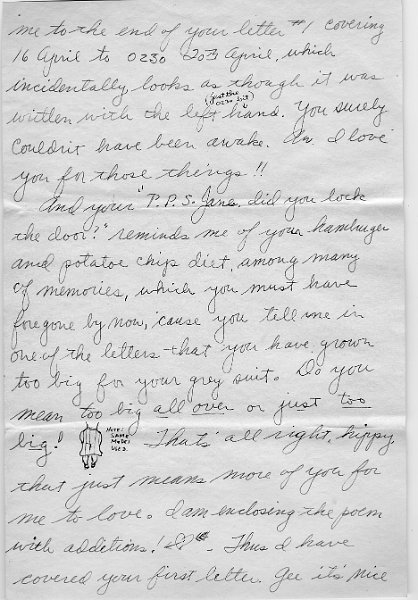 me to the end of your letter #1 covering
16 April to 0230 20th April, which
incidentally looks as though it was
(just the
0230 bit)
written with the left hand. You surely
couldn't have been awake. I love
you for those things!!
And your "P.P.S. Jane, did you lock
the door?" reminds me of your hamburger
and potatoe chips diet, among many
of memories, which you must have
foregone by now, 'cause you tell me in
one of the letters that you have grown
too big for your grey suit. Do you
mean too big all over or just too
big!
NOTE:
SAME
MODEL
USED.
That's all right, hippy
that just means more of you for
me to love. I am enclosing the poem
with additions! Thus I have
covered your first letter. Gee it's nice